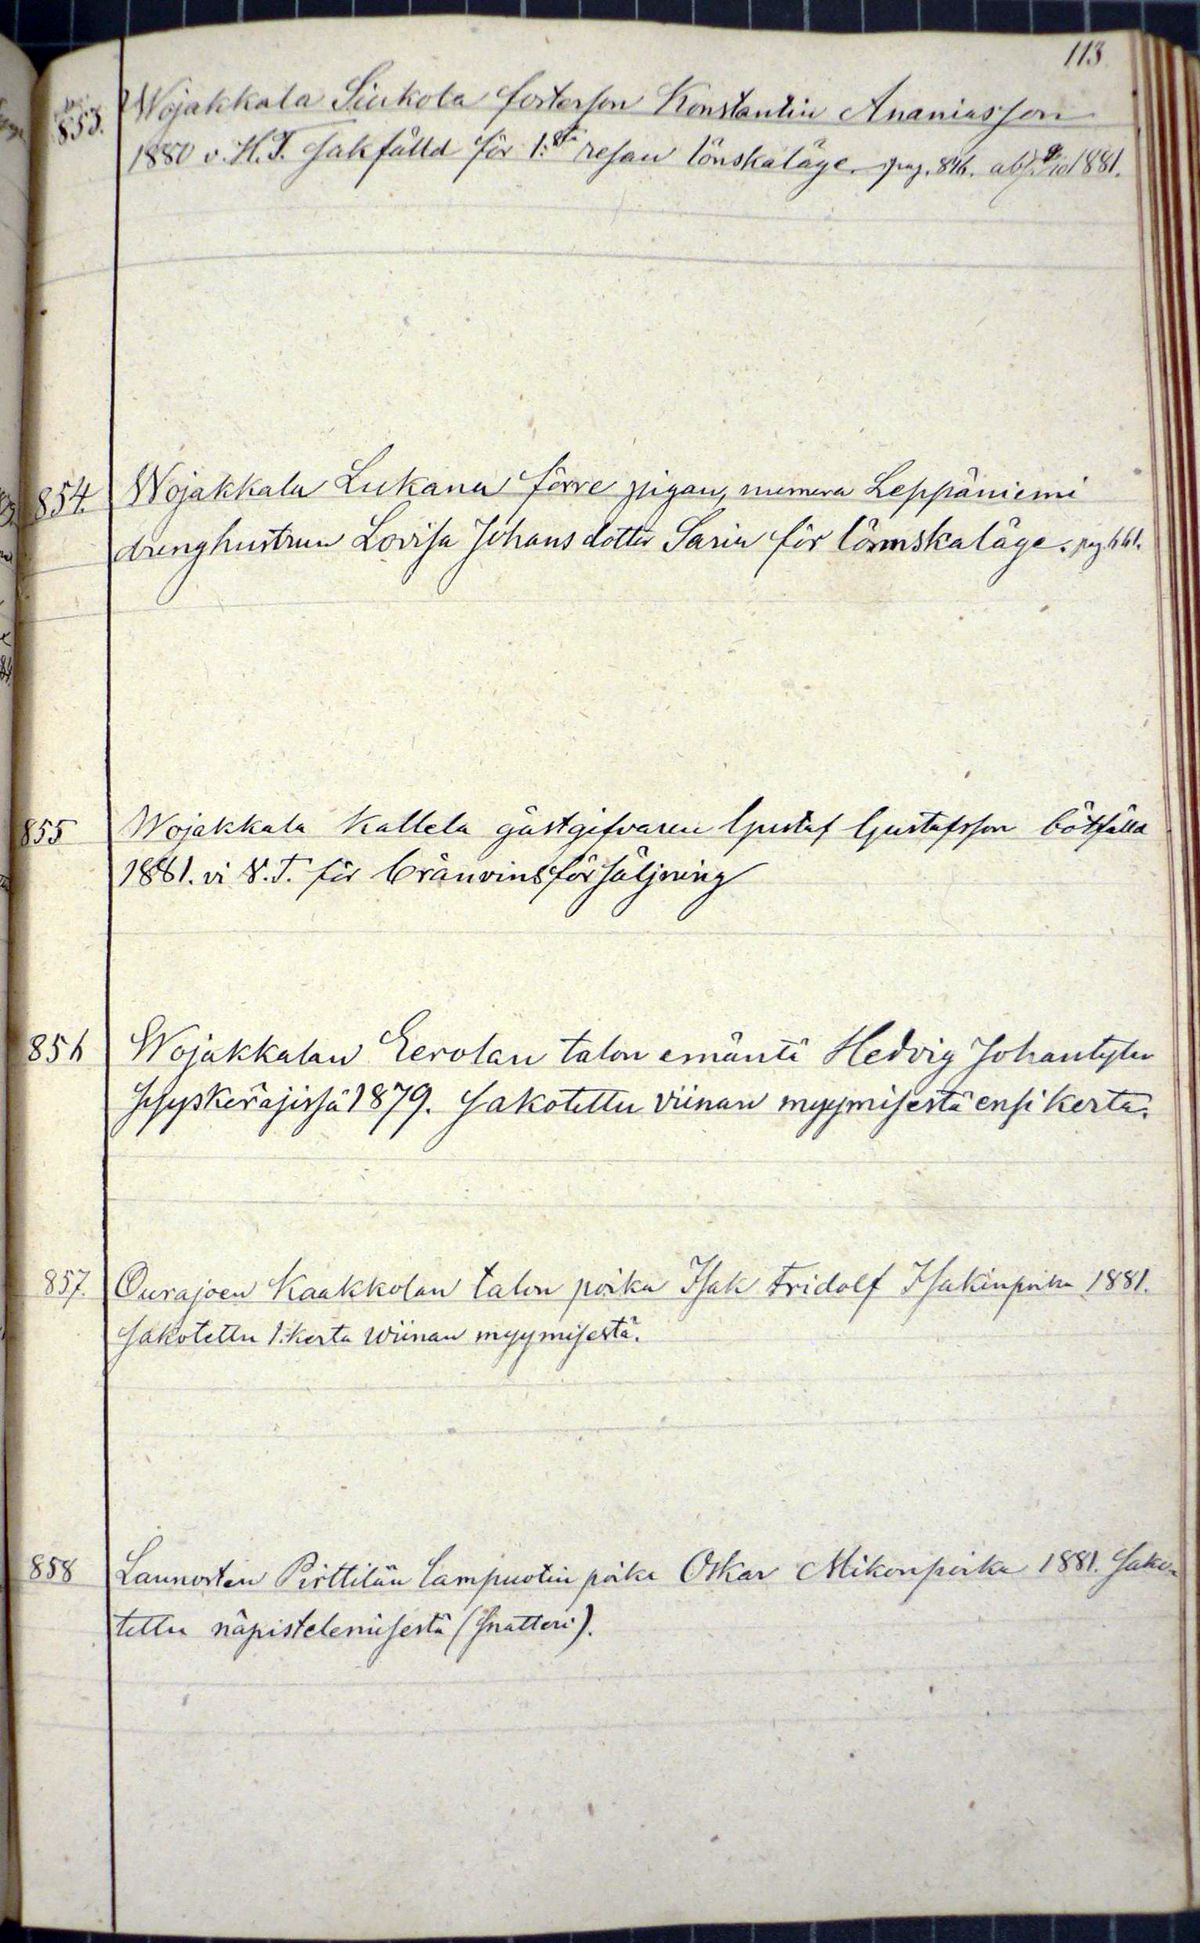 113
853. Wojakkala Siukola fosterson Konstantin Ananiasson
1880 v. H.T. sakfälld för 1:sta resan lönskaläge. pag. 846. abs. 9/10 1881.
854. Wojakkala Lukana förre pigan, numera Leppäniemi
drenghustrun Lovisa Johansdotter Saria för lönnskaläge. pag 661.
855 Wojakkala Kallela gästgifvaren Gustaf Gustafsson bötfälld
1881. vi V.T. för bränvinsförsäljning
856 Wojakkalan Eerolan talon emäntä Hedvig Johantytär
syyskeräjissä 1879. sakotettu viinan myymisestä ensi kerta.
857. Ourajoen Kaakkolan talon poika Isak Fridolf Isakinpoika 1881.
sakotettu 1. kerta wiinan myymisestä.
858 Launosten Pirttilän lampuotin poika Oskar Mikonpoika 1881. sako-
tettu näpistelemisestä (snatteri).